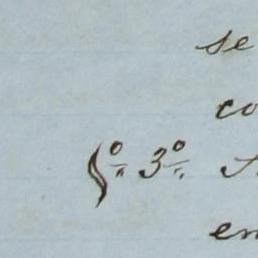 se
co
§º 3º
en